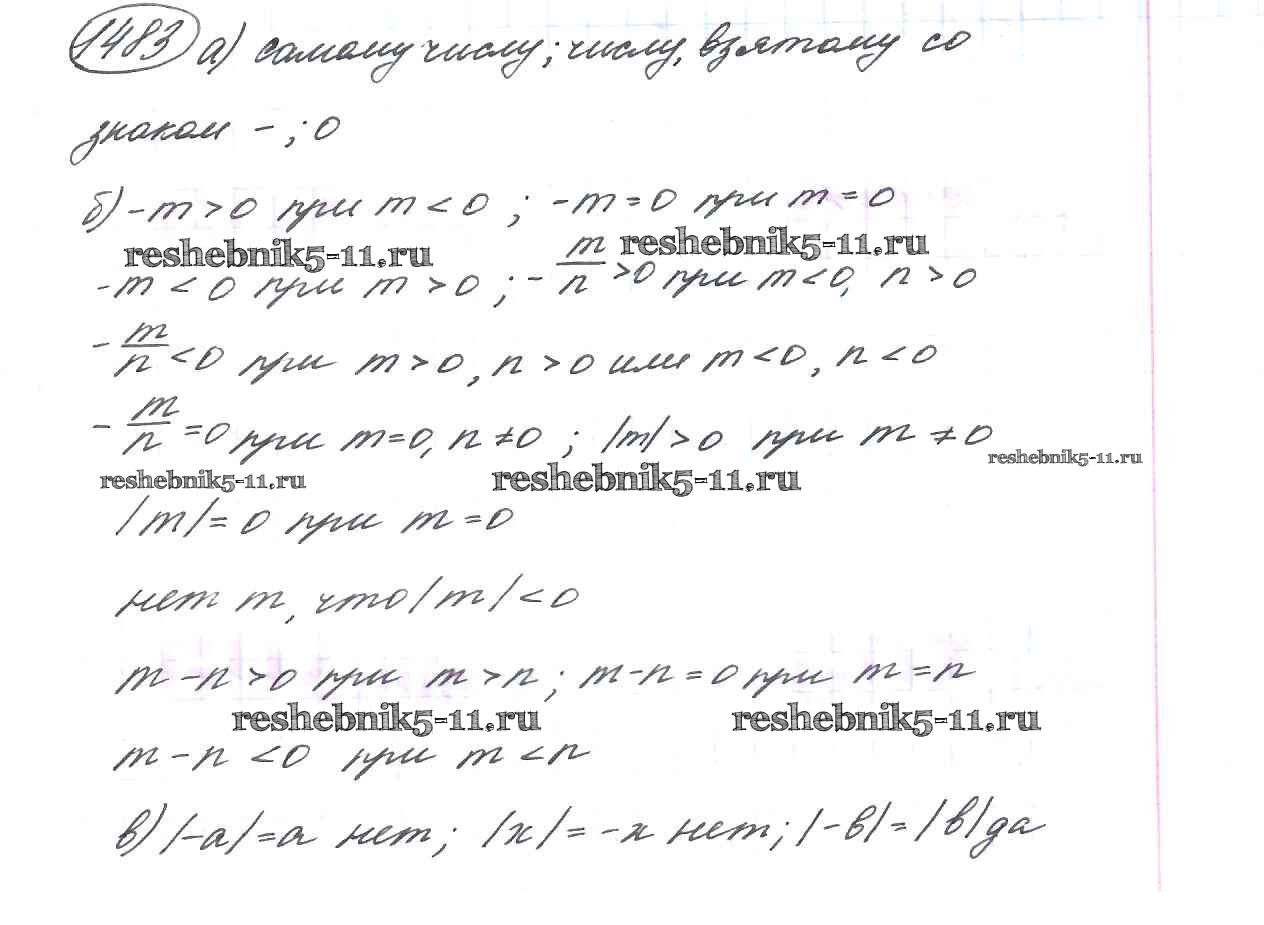 1483 а) самому числу; числу, взятому со
знаком - ; 0
б) -m > 0 при m < 0 ; -m = 0 при m = 0
reshebnik5-11.ru reshebnik5-11.ru
-m < 0 при m > 0 ; - m/n > 0 при m < 0, n > 0
- m/n < 0 при m > 0, n > 0 или m < 0, n < 0
- m/n = 0 при m = 0, n ≠ 0 ; |m| > 0 при m ≠ 0
reshebnik5-11.ru reshebnik5-11.ru reshebnik5-11.ru
|m| = 0 при m = 0
нет m, что |m| < 0
m - n > 0 при m > n ; m - n = 0 при m = n
reshebnik5-11.ru reshebnik5-11.ru
m - n < 0 при m < n
в) |-a| = a нет; |x| = -x нет; |-в| = |в| да